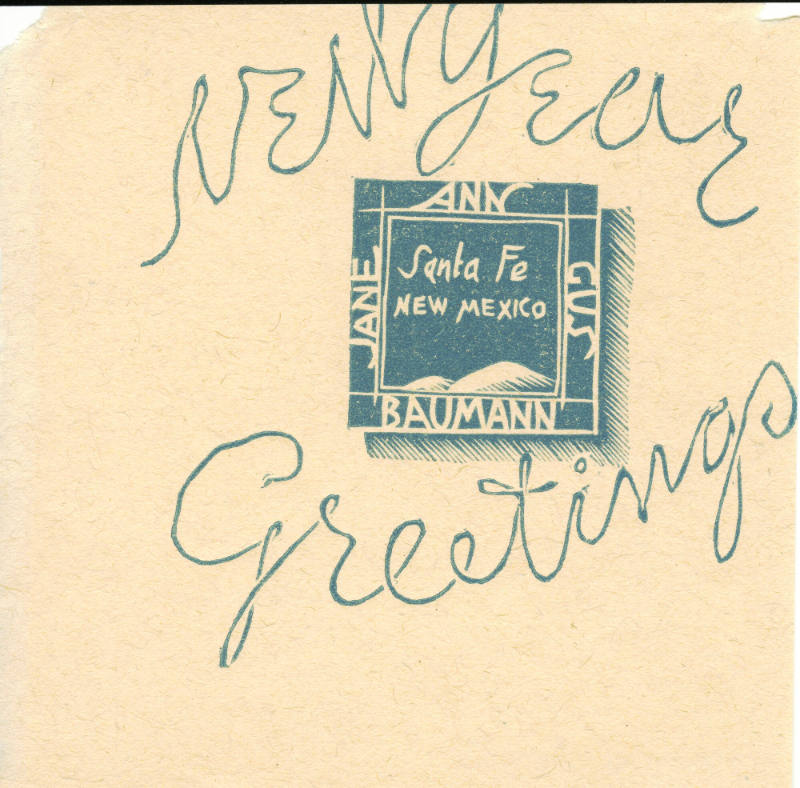 NEW YEAR
ANN
JANE
Santa Fe
NEW MEXICO
GUS
BAUMANN
Greetings